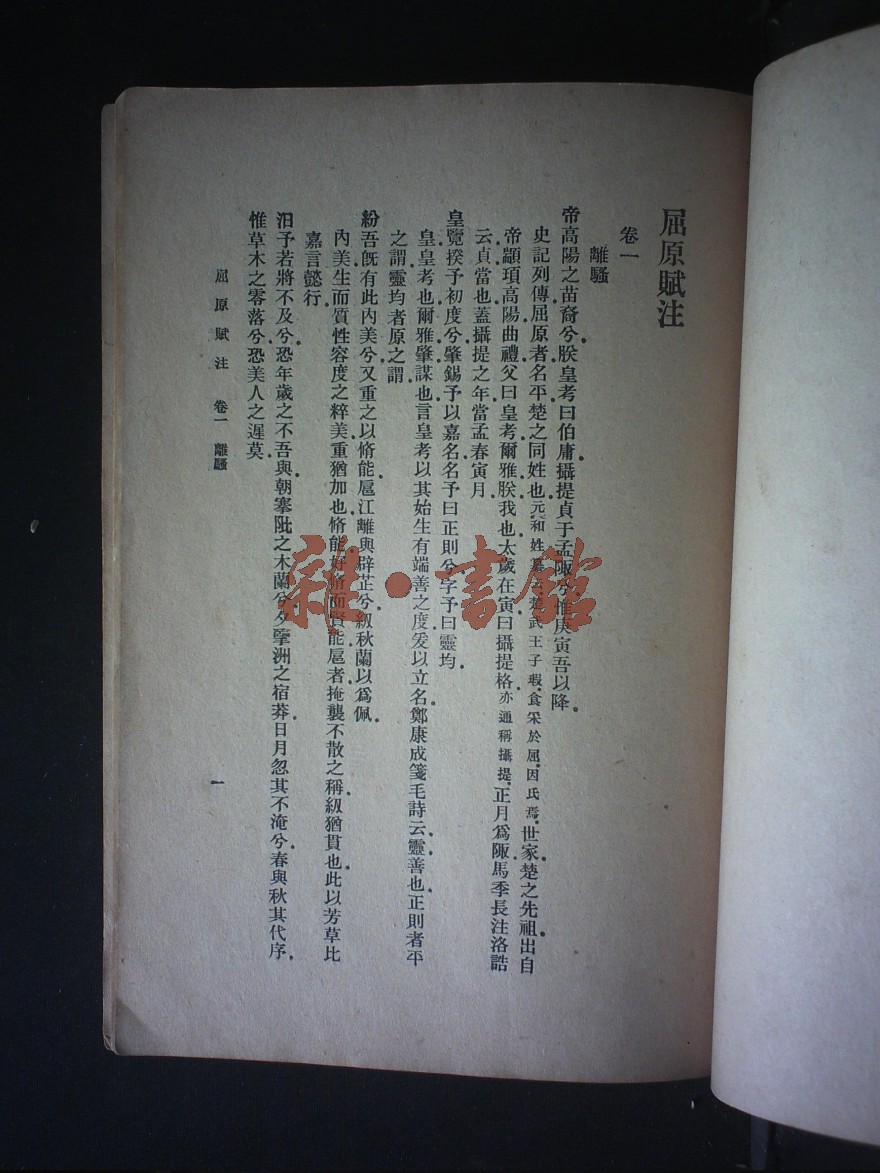 屈原賦注
卷一
離騷
帝高陽之苗裔兮．朕皇考曰伯庸．攝提貞于孟陬兮．惟庚寅吾以降．
史記列傳．屈原者．名平．楚之同姓也．元和姓纂云．楚武王子瑕．食采於屈．因氏焉．世家．楚之先祖．出自
帝顓頊高陽．曲禮．父曰皇考．爾雅．朕．我也．太歲在寅曰攝提格．亦通稱攝提．正月爲陬．馬季長注洛誥
云．貞．當也．蓋攝提之年．當孟春寅月．
皇覽揆予初度兮．肇錫予以嘉名．名予曰正則兮．字予曰靈均．
皇．皇考也．爾雅．肇．謀也．言皇考以其始生有端善之度．爰以立名．鄭康成箋毛詩云．靈．善也．正則者．平
之謂．靈均者．原之謂．
紛吾旣有此內美兮．又重之以脩能．扈江離與辟芷兮．紉秋蘭以爲佩．
內美．生而質性容度之粹美．重．猶加也．脩能．好脩而賢能．扈者．掩襲不散之稱．紉．猶貫也．此以芳草比
嘉言懿行．
汨予若將不及兮．恐年歲之不吾與．朝搴阰之木蘭兮．夕擥洲之宿莽．日月忽其不淹兮．春與秋其代序．
惟草木之零落兮．恐美人之遲莫．
屈原賦注 卷一 離騷
一
雜·書館